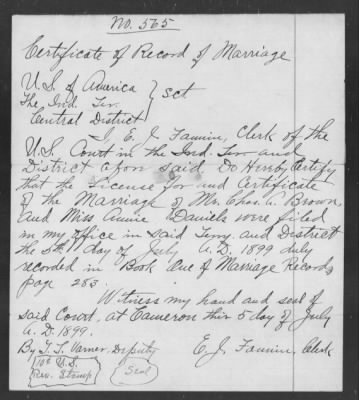 No. 565
Certificate of Record of Marriage
U.S. of America
The Ind. Ter.
Central District } sct
I, E. J. Fannin, Clerk of the
U.S. Court in the Ind. Ter and
District afore said Do Herby Certify
that the License for and Certificate
of the Marriage of Mr. Chas. A. Brown
and Miss Annie Daniels were filed
in my office in said Terry. and District
the 5th day of July A.D. 1899 duly
recorded in Book One of Marriage Records
page 283.
Witness my hand and seal of
said Court, at Cameron this 5 day of July
A.D. 1899.
By T. T. Varner, Deputy
E. J. Fannin, Clerk
10¢ U.S.
Rev. Stamp
Seal